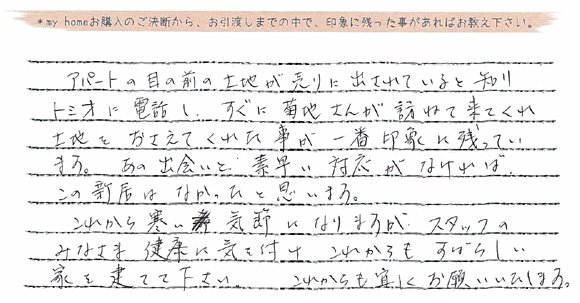 *my homeお購入のご決断から、お引渡しまでの中で、印象に残った事があればお教え下さい。
アパートの目の前の土地が売りに出されていると知り
トミオに電話し、すぐに菊地さんが訪ねて来てくれ
土地をおさえてくれた事が一番印象に残ってい
ます。あの出会いと素早い対応がなければ、
この新居はなかったと思います。
これから寒い季節になりますが、スタッフの
みなさま健康に気を付け これからもすばらしい
家を建てて下さい。 これからも宜しくお願いいたします。